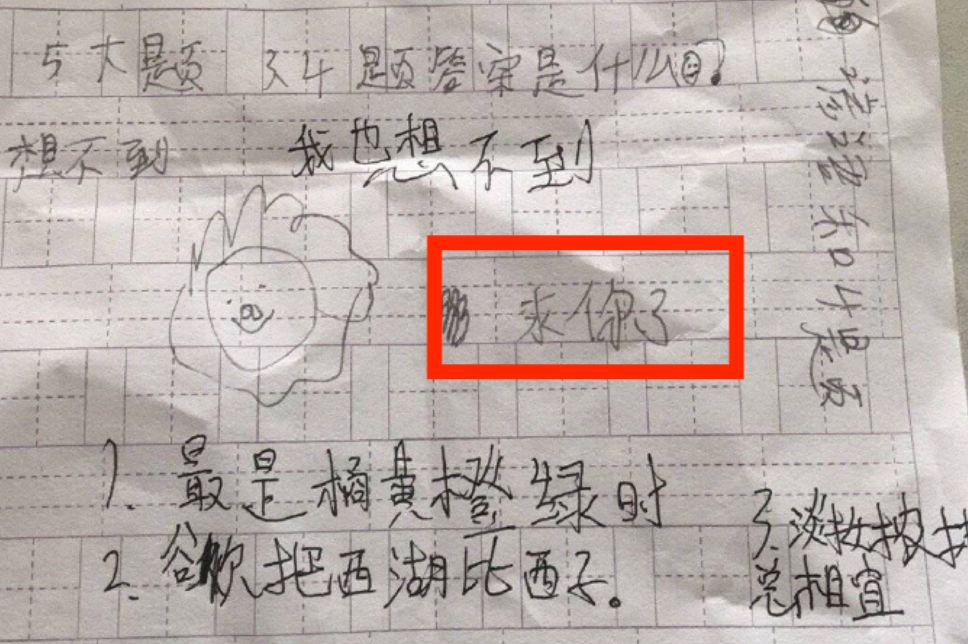 5大题 34题答案是什么?
想不到 我也想不到
求你了
1. 最是橘黄橙绿时
2. 欲把西湖比西子。
3. 淡妆
总相宜
和4是